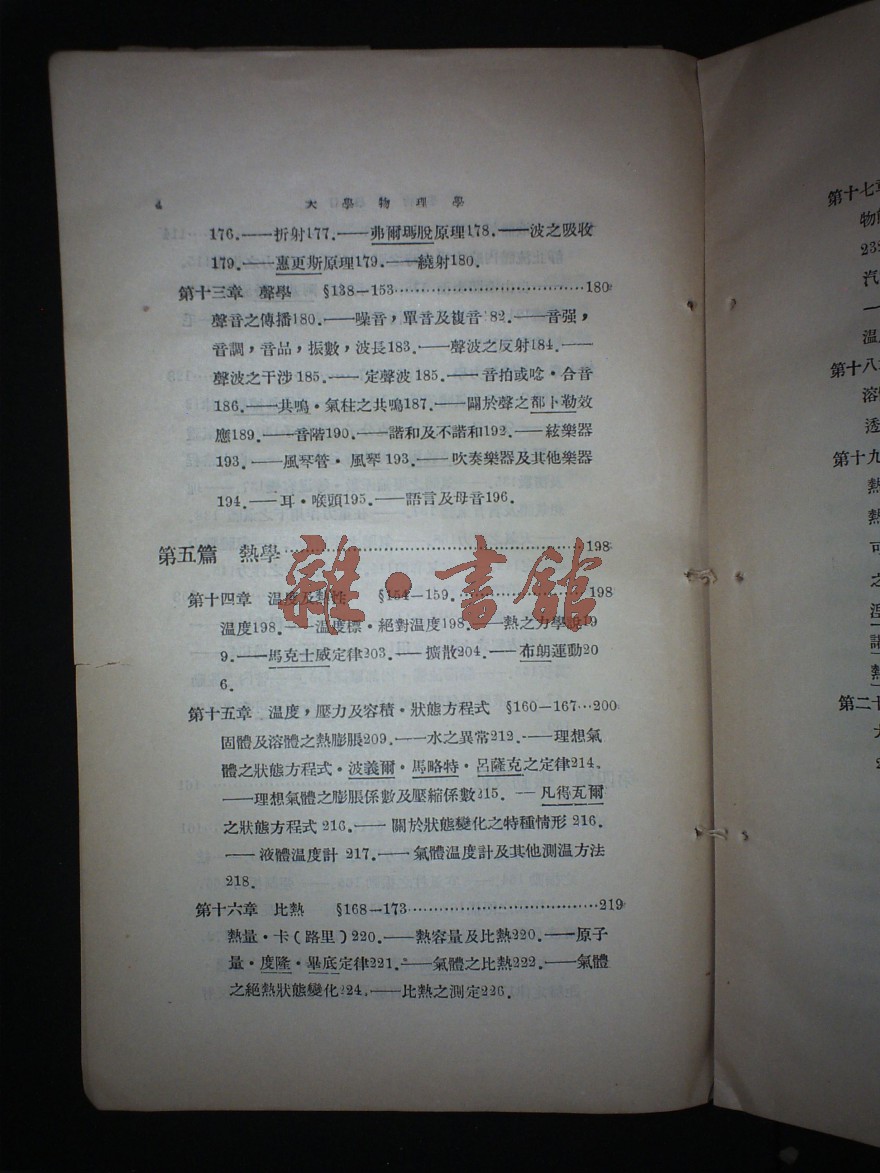 4 大學物理學
176.——折射177.——弗爾瑪脫原理178.——波之吸收
179.——惠更斯原理179.——繞射180.
第十三章 聲學 §138—153…………………………180
聲音之傳播180.——噪音，單音及複音 82.——音强，
音調，音品，振數，波長183.——聲波之反射184.——
聲波之干涉185.——定聲波185.——音拍或唸·合音
186.——共鳴·氣柱之共鳴187.——關於聲之都卜勒效
應189.——音階190.——諧和及不諧和192.——絃樂器
193.——風琴管·風琴193.——吹奏樂器及其他樂器
194.——耳·喉頭195.——語言及母音196.
第五篇 熱學…………………………198
第十四章 温度及熱性 §154—159.…………198
温度198.——温度標·絕對温度198.——熱之力學說19
9.——馬克士威定律203.——擴散204.——布朗運動20
6.
第十五章 温度，壓力及容積·狀態方程式 §160—167…200
固體及溶體之熱膨脹209.——水之異常212.——理想氣
體之狀態方程式·波義爾·馬略特·呂薩克之定律214.
——理想氣體之膨脹係數及壓縮係數215.——凡得瓦爾
之狀態方程式216.——關於狀態變化之特種情形216.
——液體温度計217.——氣體温度計及其他測温方法
218.
第十六章 比熱 §168—173…………………………219
熱量·卡（路里）220.——熱容量及比熱220.——原子
量·度隆·畢底定律221.——氣體之比熱222.——氣體
之絕熱狀態變化224.——比熱之測定226.
雜·書館
第十七章
物
23
汽
一
温
第十八章
溶
透
第十九
熱
熱
可
之
涅
諾
熱
第二十